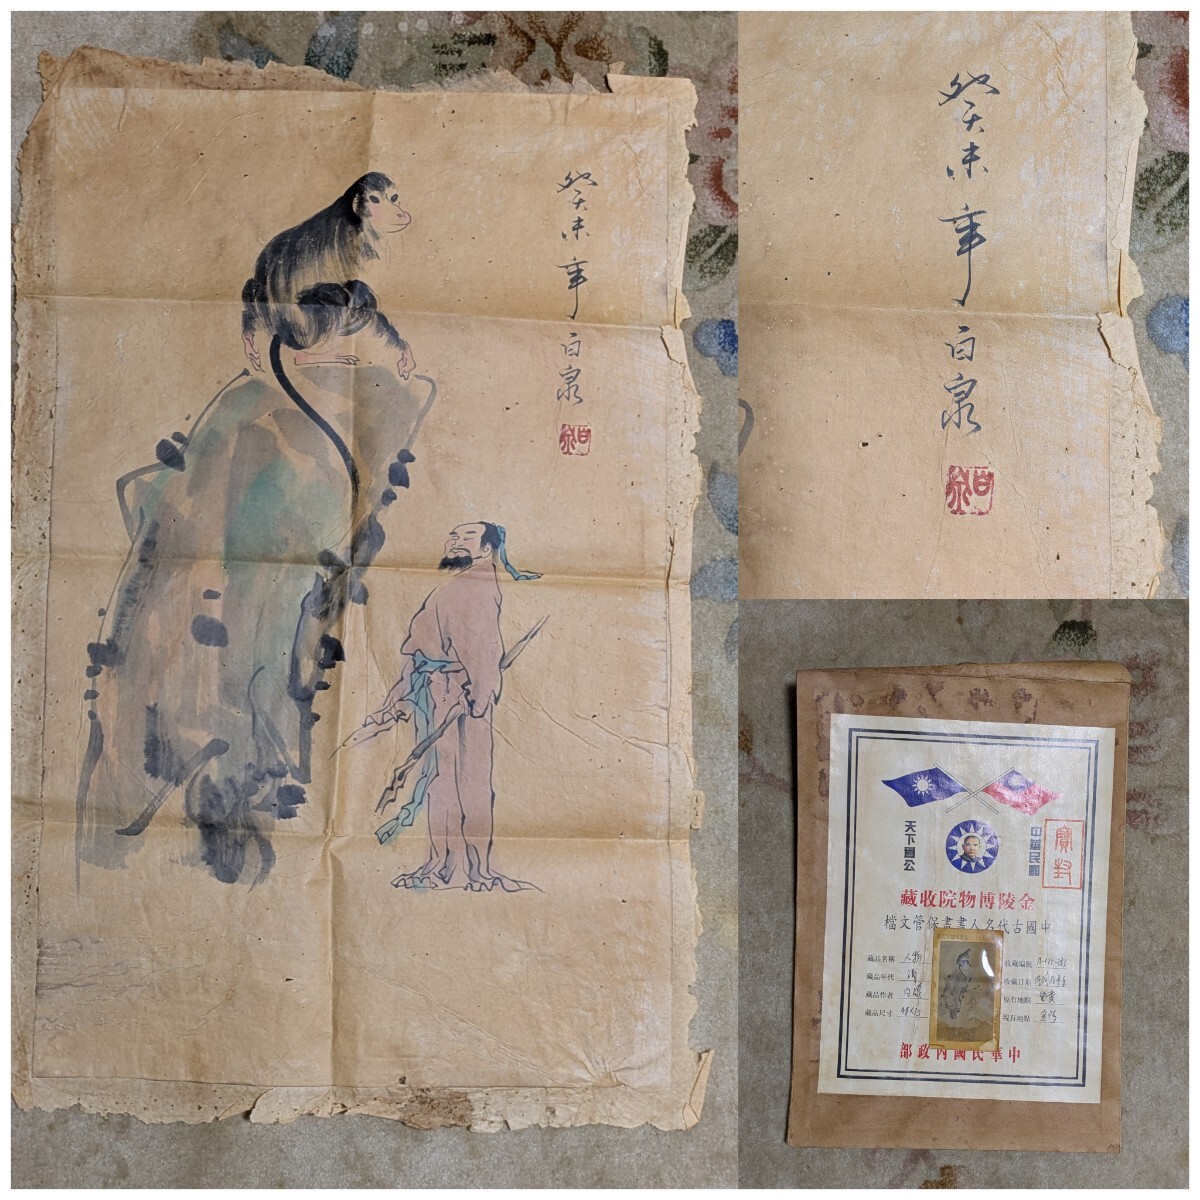 癸未年 白泉
癸未年 白泉
天下爲公
中華民國
寶封
金陵博物院收藏
中國古代名人書畫保管文檔
藏品名稱 人物
藏品年代 清
藏品作者 白泉
藏品尺寸
收藏編號
收藏日期
原有地點
現有地點
中華民國內政部